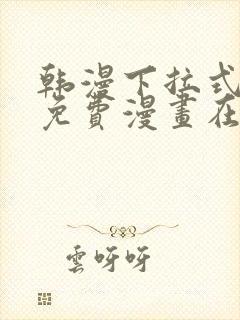 韩漫下拉式
免費漫畫在
雲呀呀